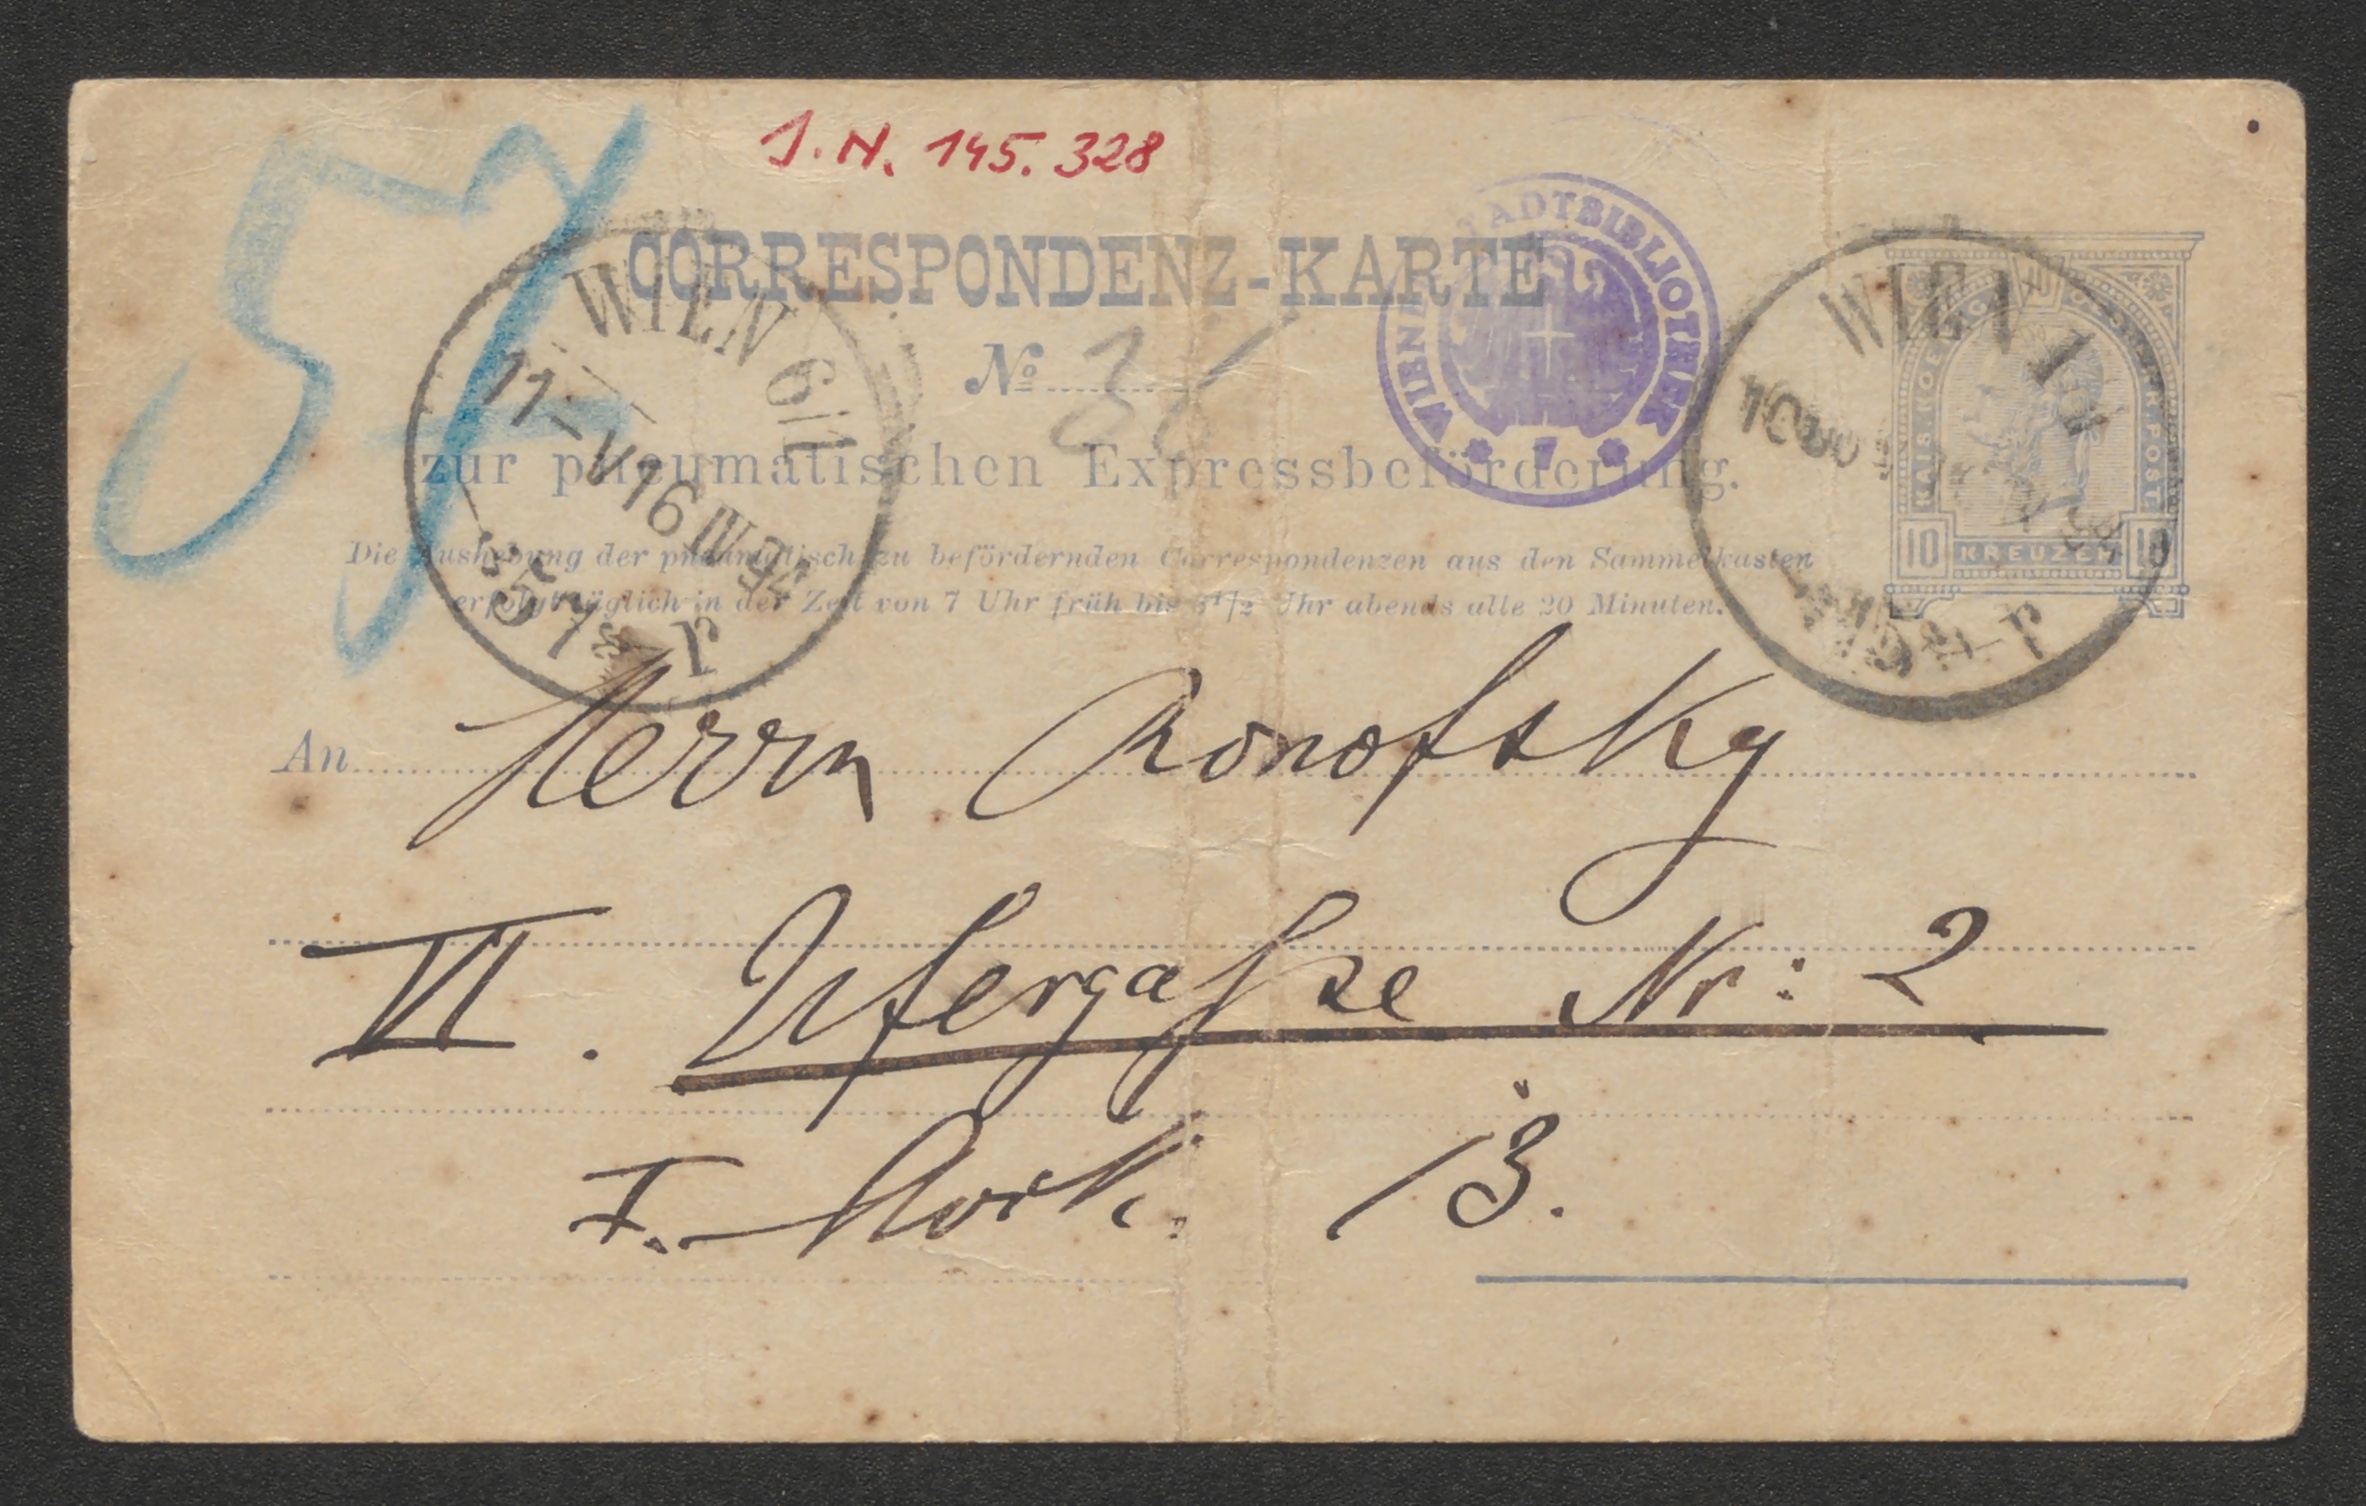 57
J. N. 145.328
CORRESPONDENZ-KARTE
No 36
zur pneumatischen Expressbeförderung.
Die Aushebung der pneumatisch zu befördernden Correspondenzen aus den Sammelkasten
erfolgt täglich in der Zeit von 7 Uhr früh bis 8½ Uhr abends alle 20 Minuten.
WIEN 6/1
11-V
16 IV 94
WIENER STADTBIBLIOTHEK
7
WIEN 1
KAIS. KOE
R. POST
10 KREUZER 10
An Herrn Ronofsky
VI. Ufergaße Nr: 2
I. Stock. 13.